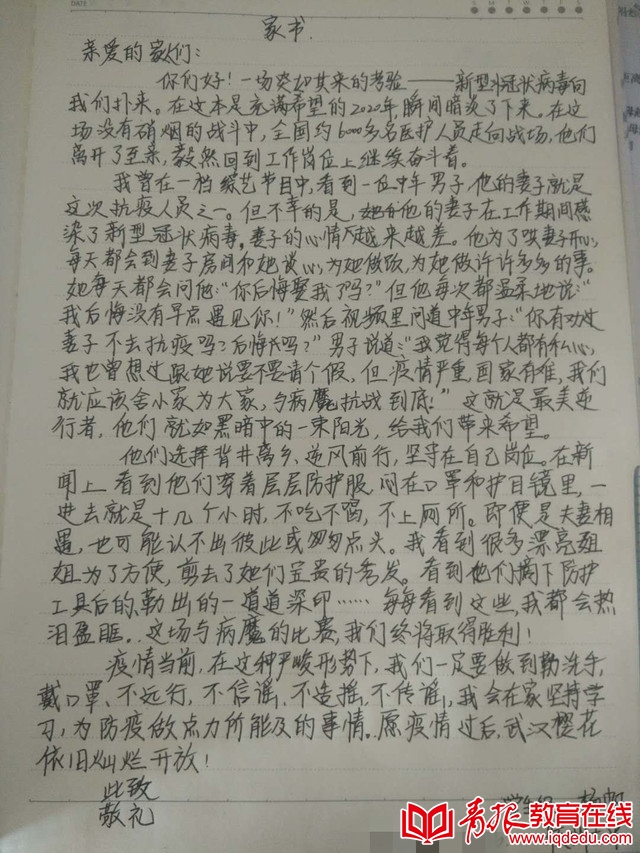 DATE
S M T W T F S
家书.
亲爱的家人们：
你们好！一场突如其来的考验——新型冠状病毒向
我们扑来。在这本是充满希望的2020年，瞬间暗淡了下来。在这
场没有硝烟的战斗中，全国约6000多名医护人员走向战场，他们
离开了至亲，毅然回到工作岗位上继续奋斗着。
我曾在一档综艺节目中，看到一位中年男子，他的妻子就是
这次抗疫人员之一。但不幸的是，他的妻子在工作期间感
染了新型冠状病毒，妻子的心情越来越差。他为了哄妻子开心，
每天都会到妻子房间和她谈心，为她做饭，为她做许许多多的事。
她每天都会问他：“你后悔娶我了吗？”但他每次都温柔地说：“
我后悔没有早点遇见你！”然后视频里问道中年男子：“你有劝过
妻子不去抗疫吗？后悔吗？”男子说道：“我觉得每个人都有私心，
我也曾想过跟她说要不要请个假，但疫情严重，国家有难，我们
就应该舍小家为大家，与病魔抗战到底！”这就是最美逆
行者，他们就如黑暗中的一束阳光，给我们带来希望。
他们选择背井离乡，逆风前行，坚守在自己岗位。在新
闻上看到他们穿着层层防护服，闷在口罩和护目镜里，一
进去就是十几个小时，不吃不喝，不上厕所。即便是夫妻相
遇，也可能认不出彼此或匆匆点头。我看到很多漂亮姐
姐为了方便，剪去了她们宝贵的秀发。看到他们摘下防护
工具后的，勒出的一道道深印……每每看到这些，我都会热
泪盈眶..这场与病魔的比赛，我们终将取得胜利！
疫情当前，在这种严峻形势下，我们一定要做到勤洗手，
戴口罩、不远行，不信谣、不造摇，不传谣，我会在家坚持学
习，为防疫做点力所能及的事情。愿疫情过后，武汉樱花
依旧灿烂开放！
此致
敬礼
青报教育在线
www.iqdedu.com